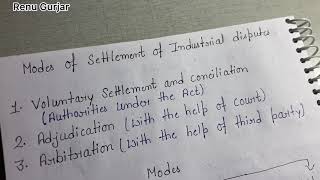 Renu Gurjar
Modes of Settlement of Industrial dispute
1. Voluntary Settlement and conciliation
(Authorities under the Act)
2. Adjudication (with the help of court)
3. Arbitration (with the help of third party)
Modes